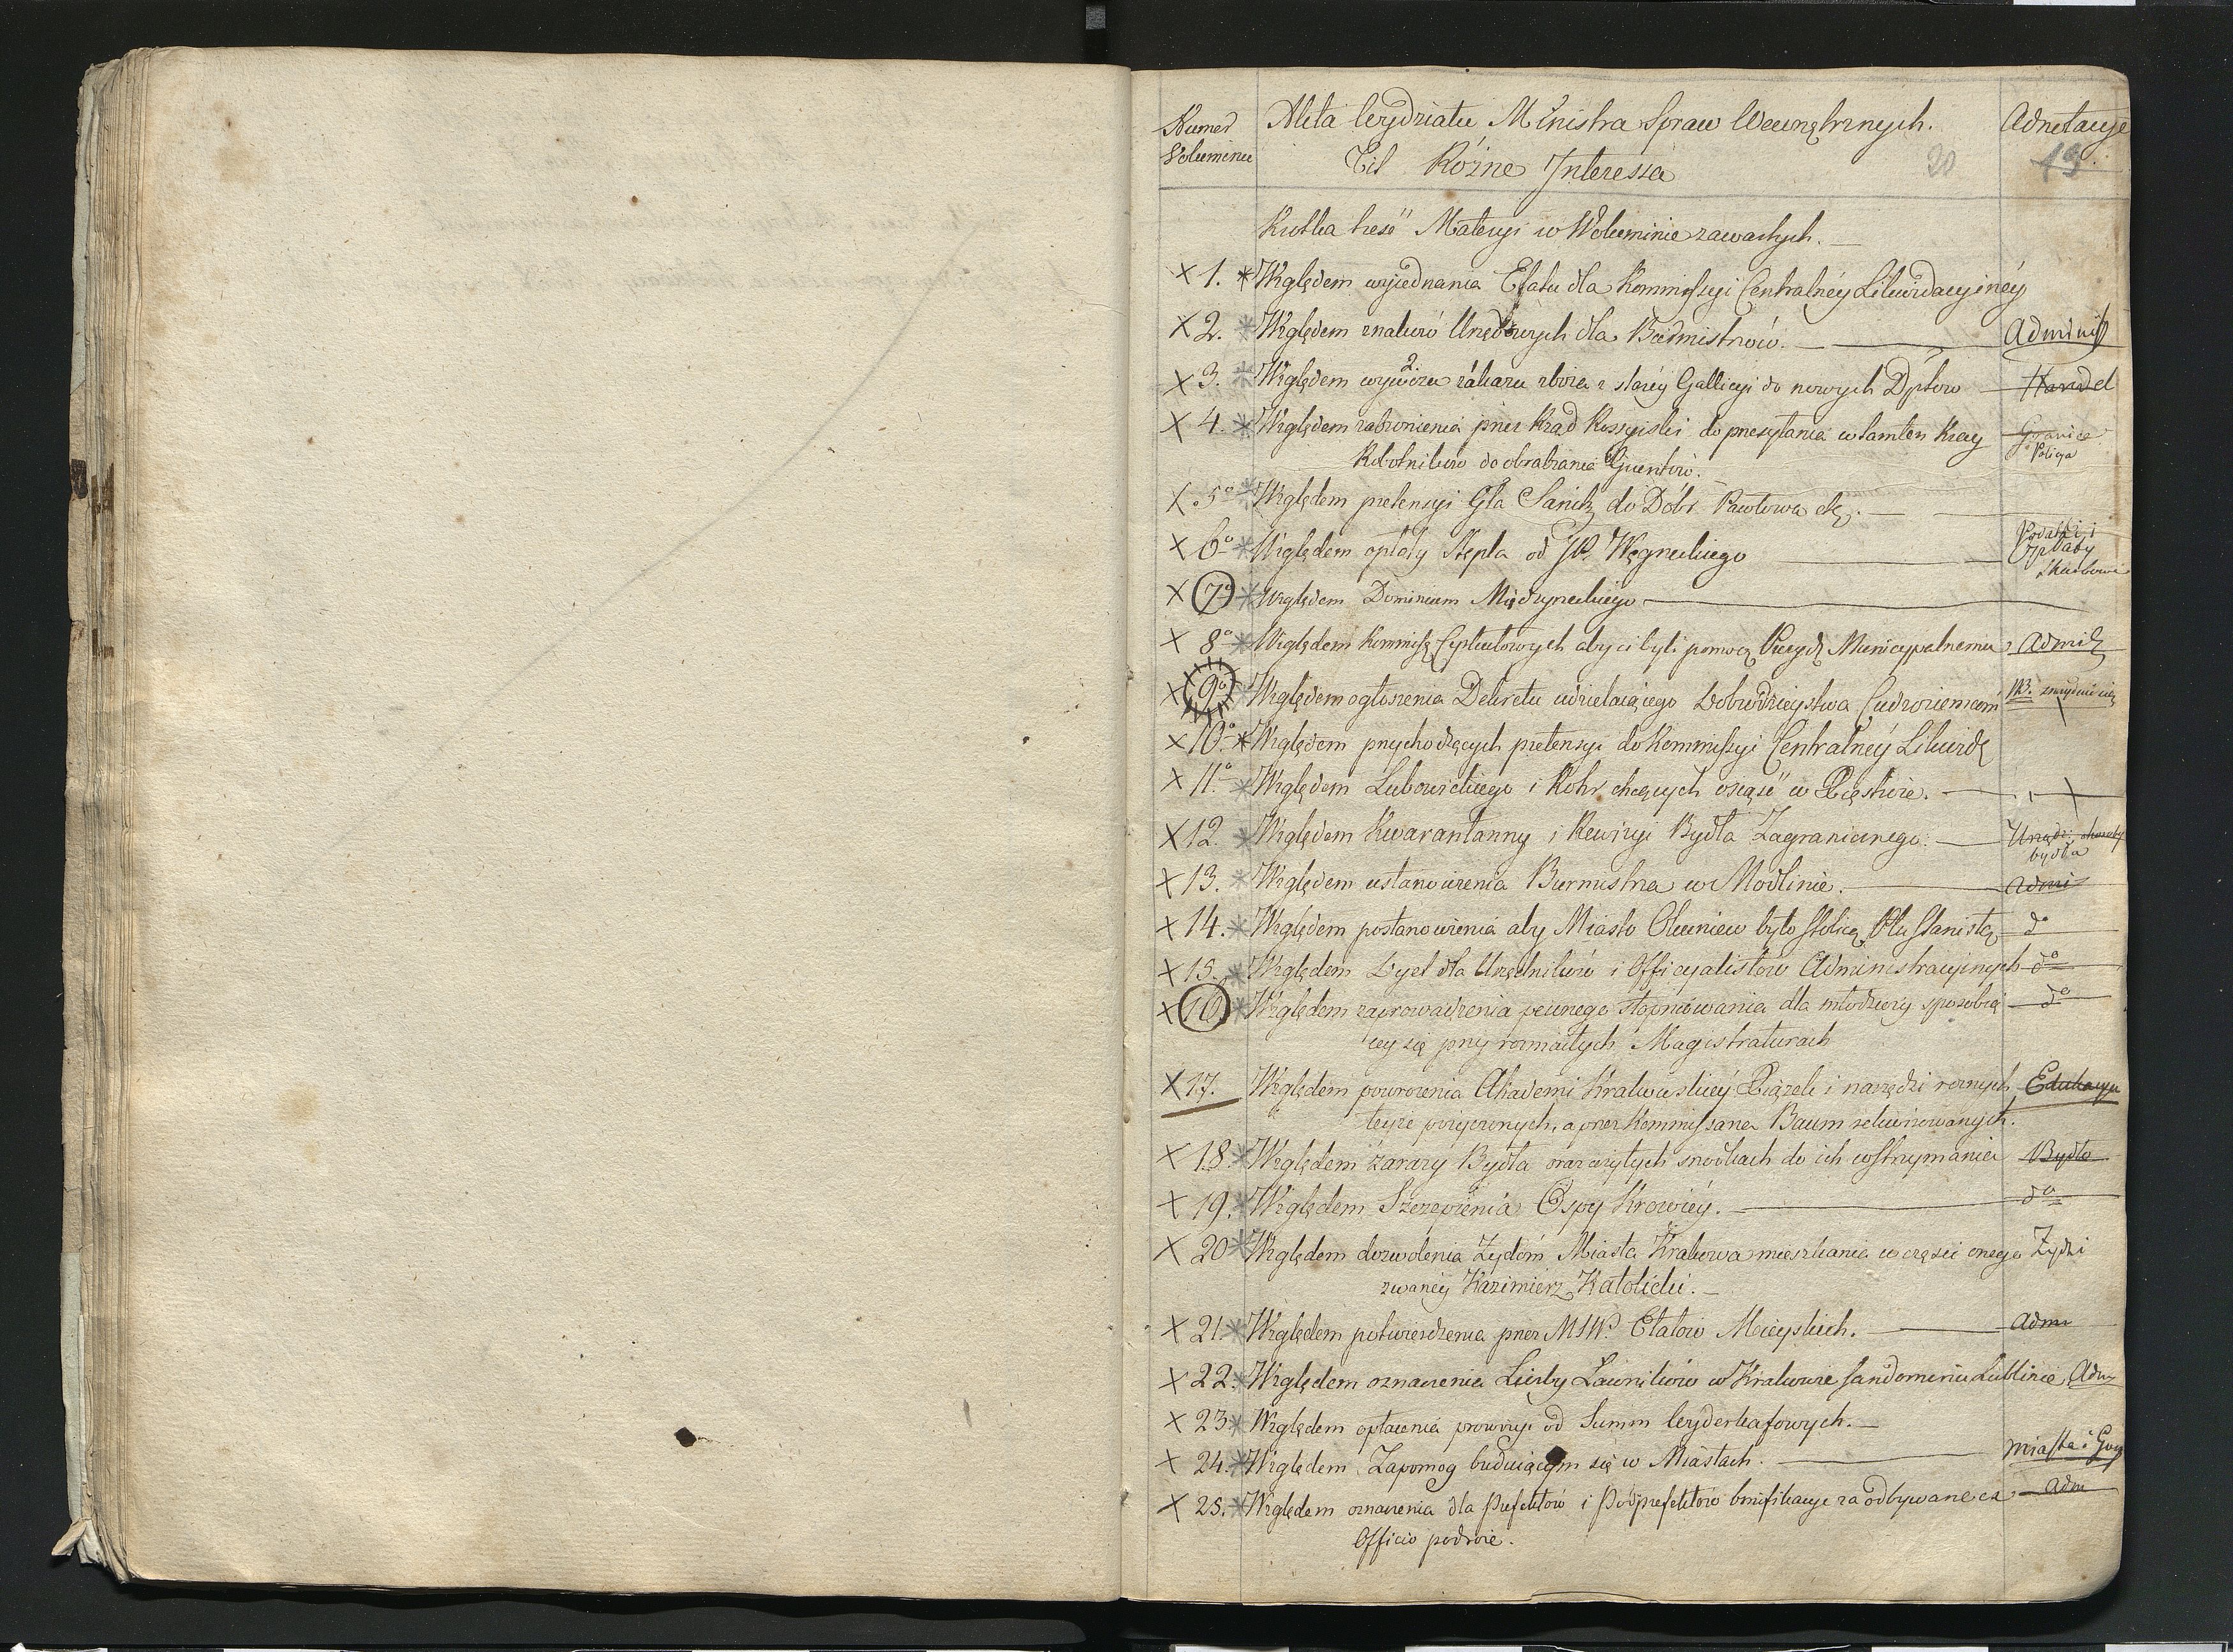 Numer Akta Wydziału Ministra Spraw Wewnętrznych. Adnotacye
Voluminu Tit Różne Interessa 20 19
Krótka treść Materyi w Woluminie zawartych. —
× 1. * Względem wyjednania Etatu dla Kommissyi Centralnéy Likwidacyinéy
× 2. * Względem znaków Urzędowych dla Burmistrzów. — Administ
× 3. * Względem wywozu zakazu zboża z staréy Gallicyi do nowych Dptow — Handel
2.
× 4. * Względem zabronienia przez Rząd Rossyiski do przesyłania w tamten Kray Granice
Robotników do obrabiania Gruentów. Policya
× 5° * Względem pretensyi Gła Sanick do Dóbr Pawłowa etc. —
× 6° * Względem opłaty Stępla od JP. Węgneckiego — Podatki i
Opłaty
Skarbowe
× 7° * Względem Dominium Międzyrzeckiego —
× 8° * Względem Kommiss Cyrkułowych aby ci byli pomocą Prezyd Municypalnemu Admi
× 9° * Względem ogłoszenia Dekretu udzielaiącego Dobrodzieystwa Cudzoziemcom NB. znayduie się
× 10. * Względem przychodzących pretensyi do Kommissyi Centralnéy Likwid
× 11° * Względem Lubowickiego i Rohr chcących osiąść w Xięstwie. —
× 12. * Względem Kwarantanny i Rewizyi Bydła Zagranicznego. — Urządz: choroby
bydła
× 13. * Względem ustanowienia Burmistrza w Modlinie. — Admi
× 14. * Względem postanowienia aby Miasto Okuniew było Stolicą Ptu Stanisła — d°
× 15. * Względem Dyet dla Urzędników i Officyalistow Administracyjnych — d°
× 16. * Względem zaprowadzenia pewnego stopniowania dla młodzieży sposobią — d°
cey się przy rozmaitych Magistraturach
× 17. Względem powrócenia Akademi Krakowskiéy Xiążek i narzędzi roznych Edukacya
teyże pożyczonych, a przez Kommissarza Baum rekwirowanych.
× 18. * Względem zarazy Bydła oraz użytych srodkach do ich wstrzymania Bydło
× 19. * Względem Szczepienia Ospy Krowiéy. — d°
× 20 * Względem dozwolenia Żydóm Miasta Krakowa mieszkania w części onego Żydzi
zwanéy Kazimierz Katolicki. —
× 21. * Względem potwierdzenia przez MSW. Etatów Mieyskich. — Adm
× 22. * Względem oznaczenia Liczby Ławników w Krakowie Sandomirzu Lublinie Adm
× 23 * Względem opłacenia prowizyi od Summ Wyderkafowych. —
× 24. * Względem Zapomog buduiącym się w Miastach. — Miasta i
× 25. * Względem oznaczenia dla Prefektów i Podprefektów bonifikacye za odbywane ex — Adm
Officio podroże.